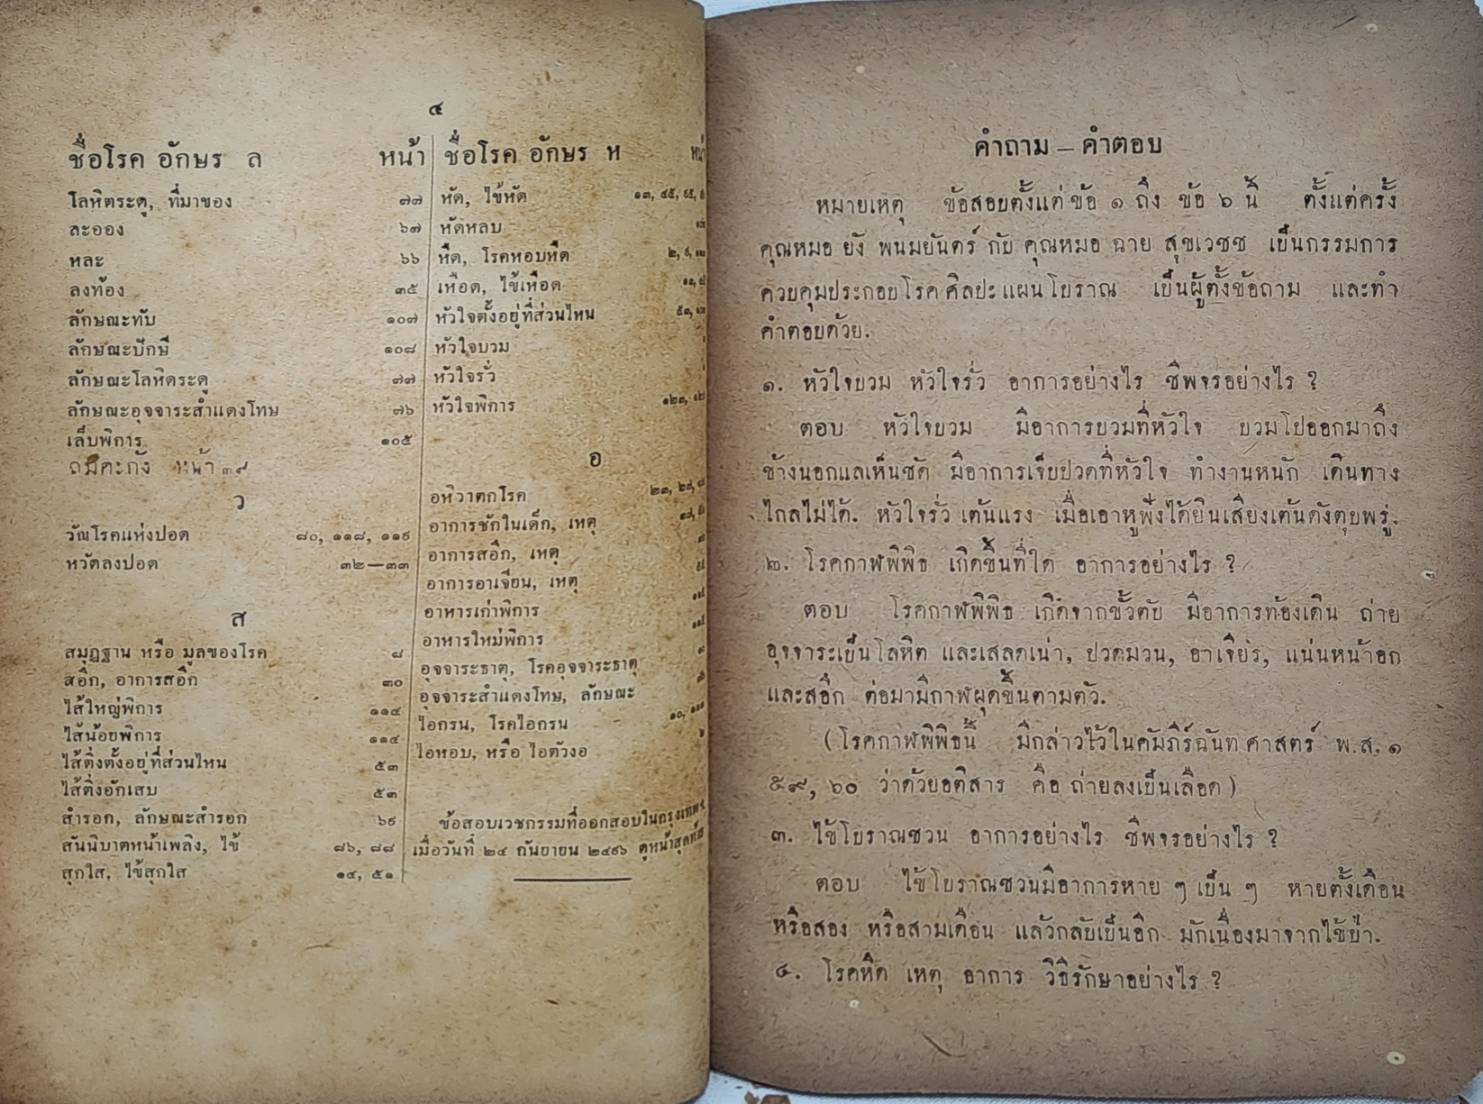 ๔
ชื่อโรค อักษร ล หน้า
โลหิตระดู, ที่มาของ ๗๗
ละออง ๖๗
หละ ๖๖
ลงท้อง ๓๕
ลักษณะทับ ๑๐๗
ลักษณะปักษี ๑๐๘
ลักษณะโลหิตระดู ๗๗
ลักษณะอุจจาระสำแดงโทษ ๗๖
เล็บพิการ ๑๐๕
หน้า ๓๙
ว
วัณโรคแห่งปอด ๘๐, ๑๑๘, ๑๑๙
หวัดลงปอด ๓๒—๓๓
ส
สมุฏฐาน หรือ มูลของโรค ๘
สอึก, อาการสอึก ๓๐
ไส้ใหญ่พิการ ๑๑๔
ไส้น้อยพิการ ๑๑๔
ไส้ติ่งตั้งอยู่ที่ส่วนไหน ๕๓
ไส้ติ่งอักเสบ ๕๓
สำรอก, ลักษณะสำรอก ๖๙
สันนิบาตหน้าเพลิง, ไข้ ๘๖, ๘๘
สุกใส, ไข้สุกใส ๑๔, ๕๑
ชื่อโรค อักษร ห
หัด, ไข้หัด
หัดหลบ
หืด, โรคหอบหืด
เหือด, ไข้เหือด
หัวใจตั้งอยู่ที่ส่วนไหน
หัวใจบวม
หัวใจรั่ว
หัวใจพิการ
อ
อหิวาตกโรค
อาการชักในเด็ก, เหตุ
อาการสอึก, เหตุ
อาการอาเจียน, เหตุ
อาหารเก่าพิการ
อาหารใหม่พิการ
อุจจาระธาตุ, โรคอุจจาระธาตุ
อุจจาระสำแดงโทษ, ลักษณะ
ไอกรน, โรคไอกรน
ไอหอบ, หรือ ไอตัวงอ
ข้อสอบเวชกรรมที่ออกสอบในกรุงเทพฯ
เมื่อวันที่ ๒๔ กันยายน ๒๔๙๖ ดูหน้าสุดท้าย
คำถาม – คำตอบ
หมายเหตุ ข้อสอบตั้งแต่ข้อ ๑ ถึง ข้อ ๖ นี้ ตั้งแต่ครั้ง
คุณหมอ ยัง พนมยันตร์ กับ คุณหมอ ฉาย สุขเวชช เป็นกรรมการ
ควบคุมประกอบโรคศิลปะแผนโบราณ เป็นผู้ตั้งข้อถาม และทำ
คำตอบด้วย.
๑. หัวใจบวม หัวใจรั่ว อาการอย่างไร ชีพจรอย่างไร ?
ตอบ หัวใจบวม มีอาการบวมที่หัวใจ บวมโปออกมาถึง
ข้างนอกแลเห็นชัด มีอาการเจ็บปวดที่หัวใจ ทำงานหนัก เดินทาง
ไกลไม่ได้. หัวใจรั่ว เต้นแรง เมื่อเอาหูฟังได้ยินเสียงเต้นดังตุบพรู่.
๒. โรคกาฬพิพิธ เกิดขึ้นที่ใด อาการอย่างไร ?
ตอบ โรคกาฬพิพิธ เกิดจากขั้วตับ มีอาการท้องเดิน ถ่าย
อุจจาระเป็นโลหิต และเสลดเน่า, ปวดมวน, อาเจียร, แน่นหน้าอก
และสอึก ต่อมามีกาฬผุดขึ้นตามตัว.
(โรคกาฬพิพิธนี้ มีกล่าวไว้ในคัมภีร์ฉันทศาสตร์ พ.ส. ๑
๕๙, ๖๐ ว่าด้วยอติสาร คือ ถ่ายลงเป็นเลือด)
๓. ไข้โบราณชวน อาการอย่างไร ชีพจรอย่างไร ?
ตอบ ไข้โบราณชวนมีอาการหาย ๆ เป็น ๆ หายตั้งเดือน
หรือสอง หรือสามเดือน แล้วกลับเป็นอีก มักเนื่องมาจากไข้ป่า.
๔. โรคหืด เหตุ อาการ วิธีรักษาอย่างไร ?